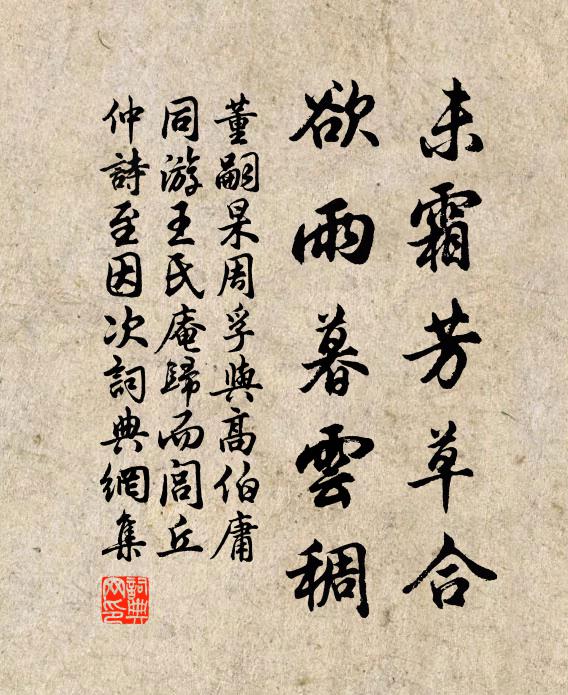 未霜芳草合
欲雨暮雲稠
董嗣杲周孚與高伯庸
同游王氏庵歸而閭丘
仲詩至因次詞典網集
詞典